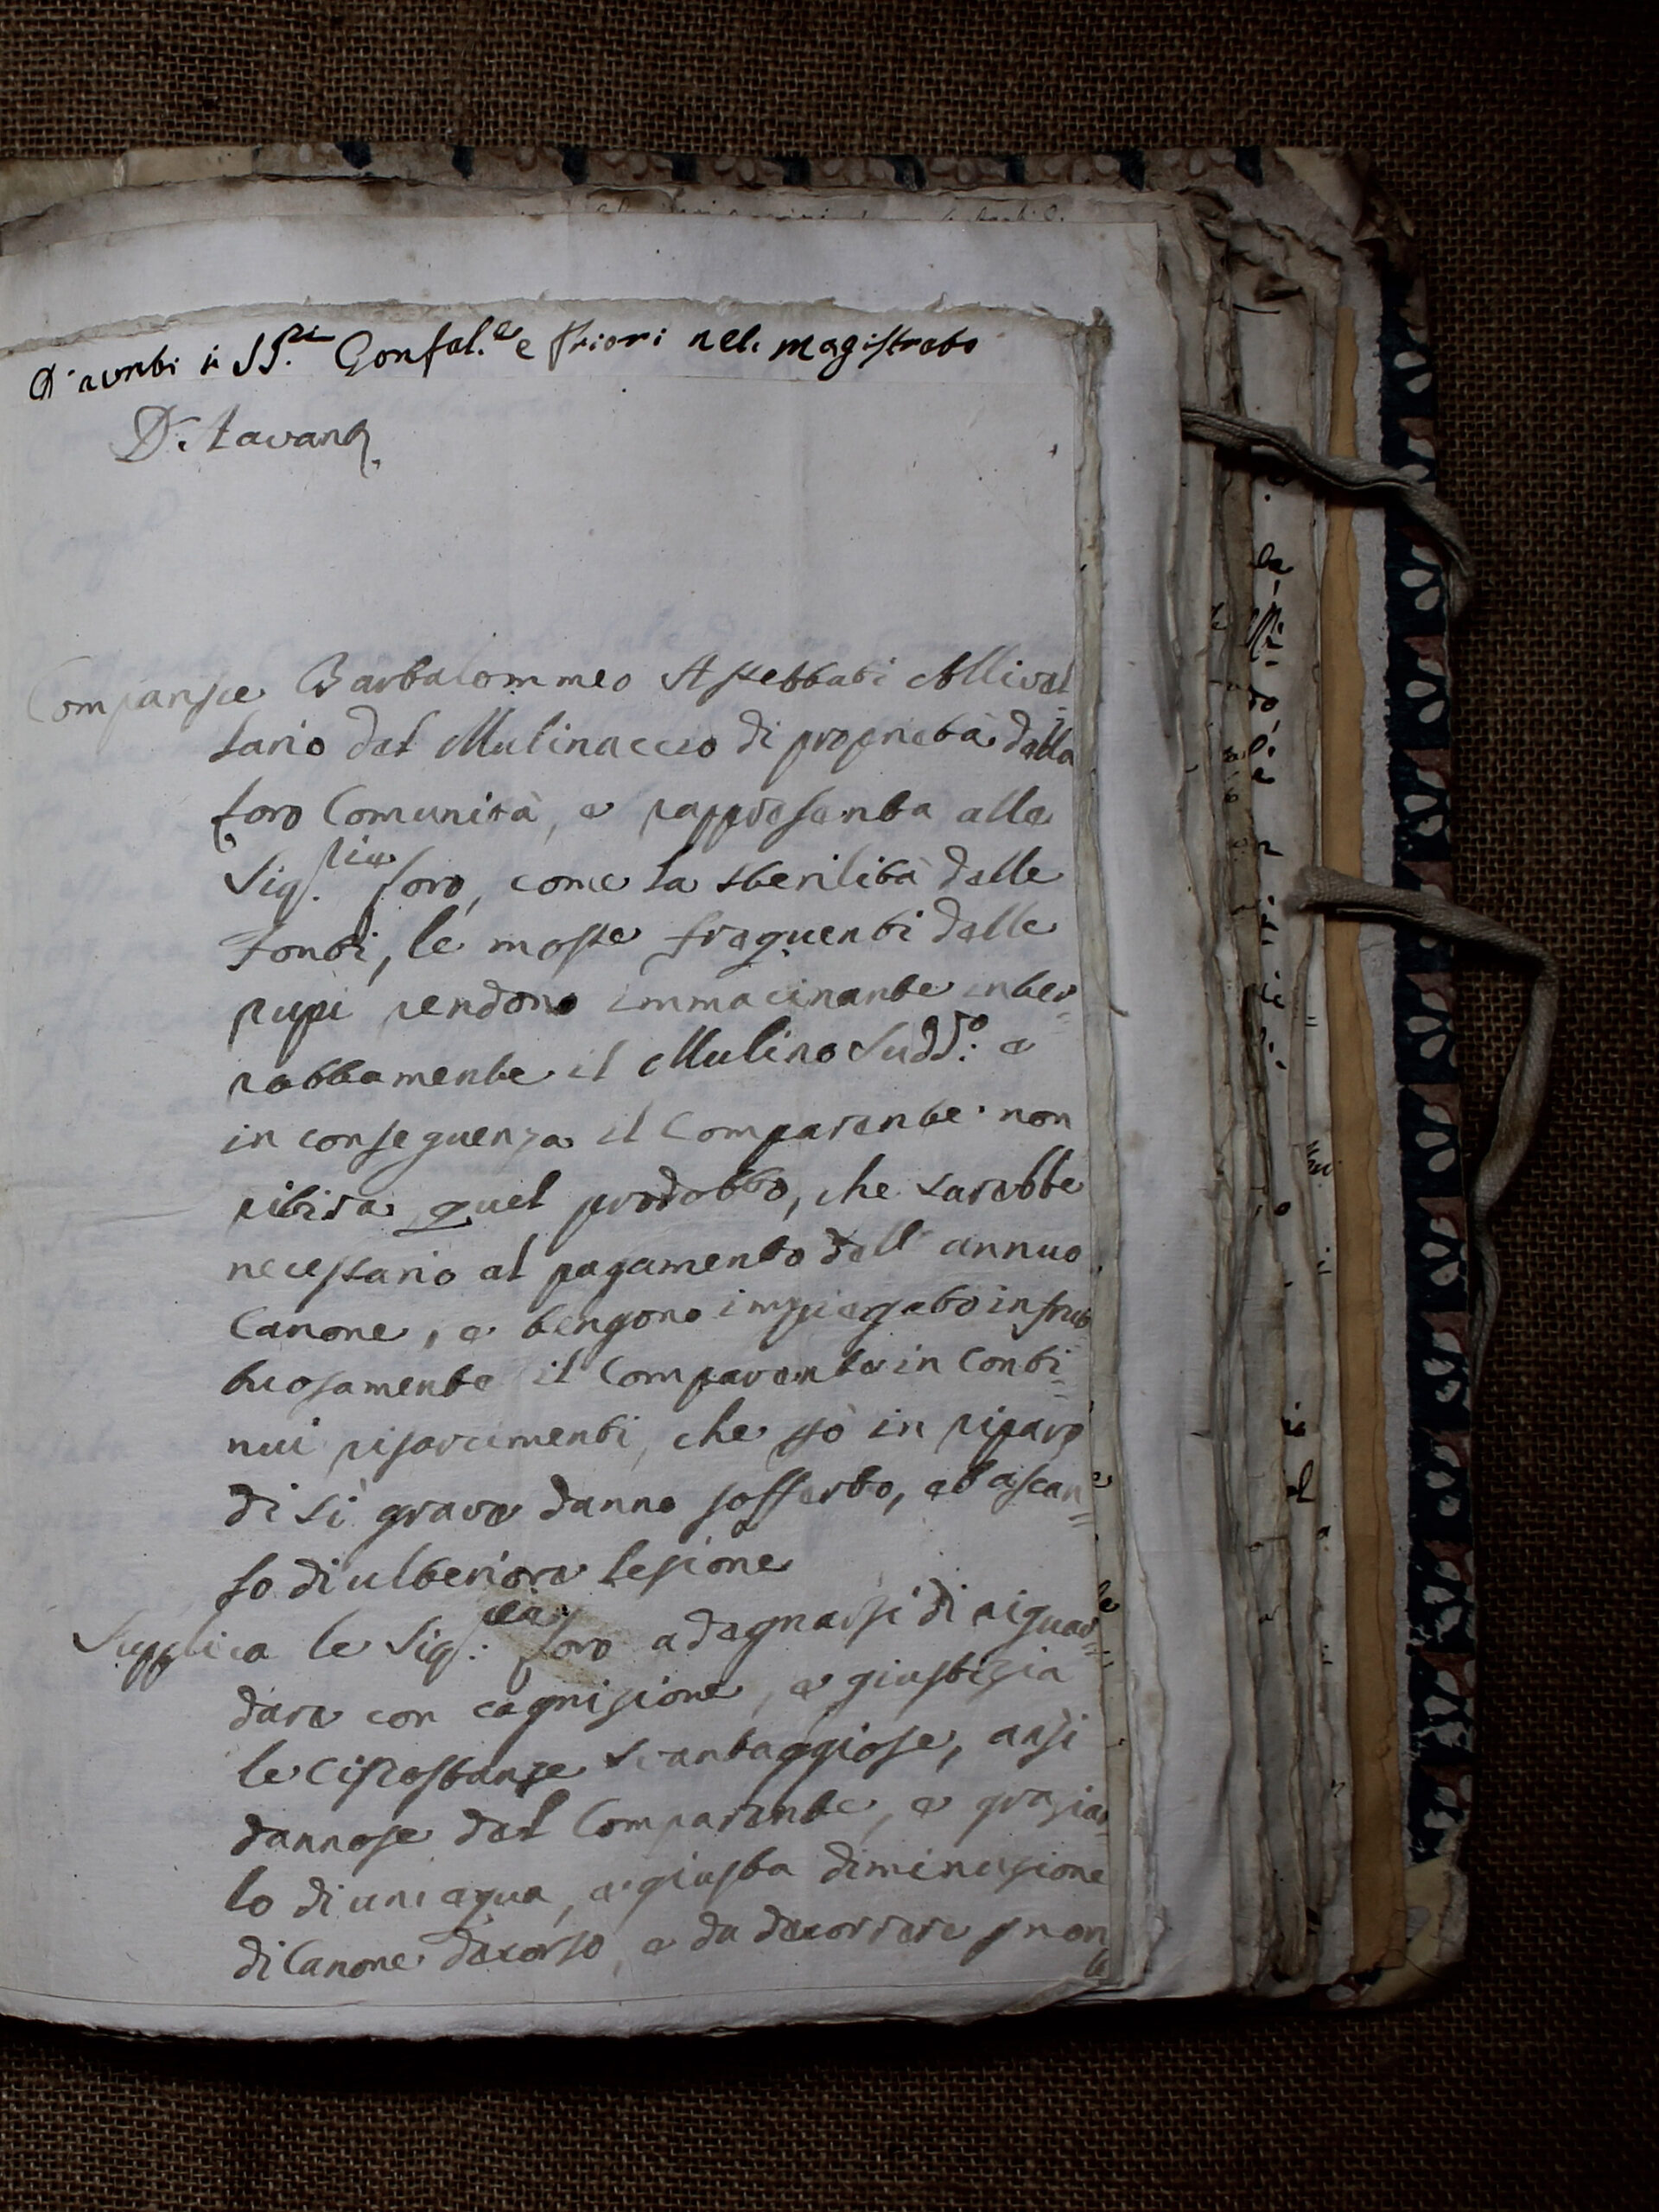 D'avanti i SS.ri Gonfal.e e Priori nel magistrato
D. Lavano
Comparisce Bartolommeo Aspettati Allivel=
lario del Mulinaccio di proprietà della
loro Comunità, e rappresenta alle
Sig.rie loro, come la sterilità delle
fonti, le mosse frequenti delle
rupi rendono immacinante inter=
rottamente il Mulino Sudd.o e
in conseguenza il Comparente non
ritira quel prodotto, che sarebbe
necessario al pagamento dell' annuo
Canone, e tengono impiegato infrut
tuosamente il Comparente in Conti=
nui risarcimenti, che sò in riparo
di sì grave danno sofferto, et ascan=
so di ulteriore lesione
Supplica le Sig.rie loro a degnarsi di riguar=
dare con cognizione, e giustizia
le Circostanze svantaggiose, anzi
dannose del Comparente, e graziar=
lo di una equa, e giusta diminuzione
di Canone decorso, e da decorrere